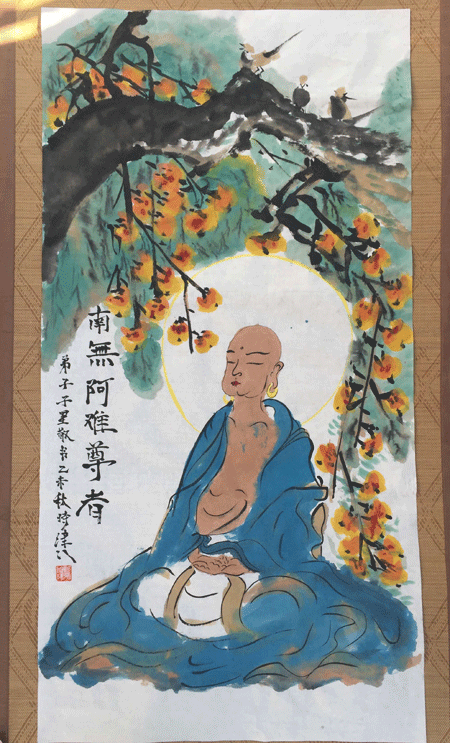 南無阿难尊者
弟子于敬书乙未秋津门